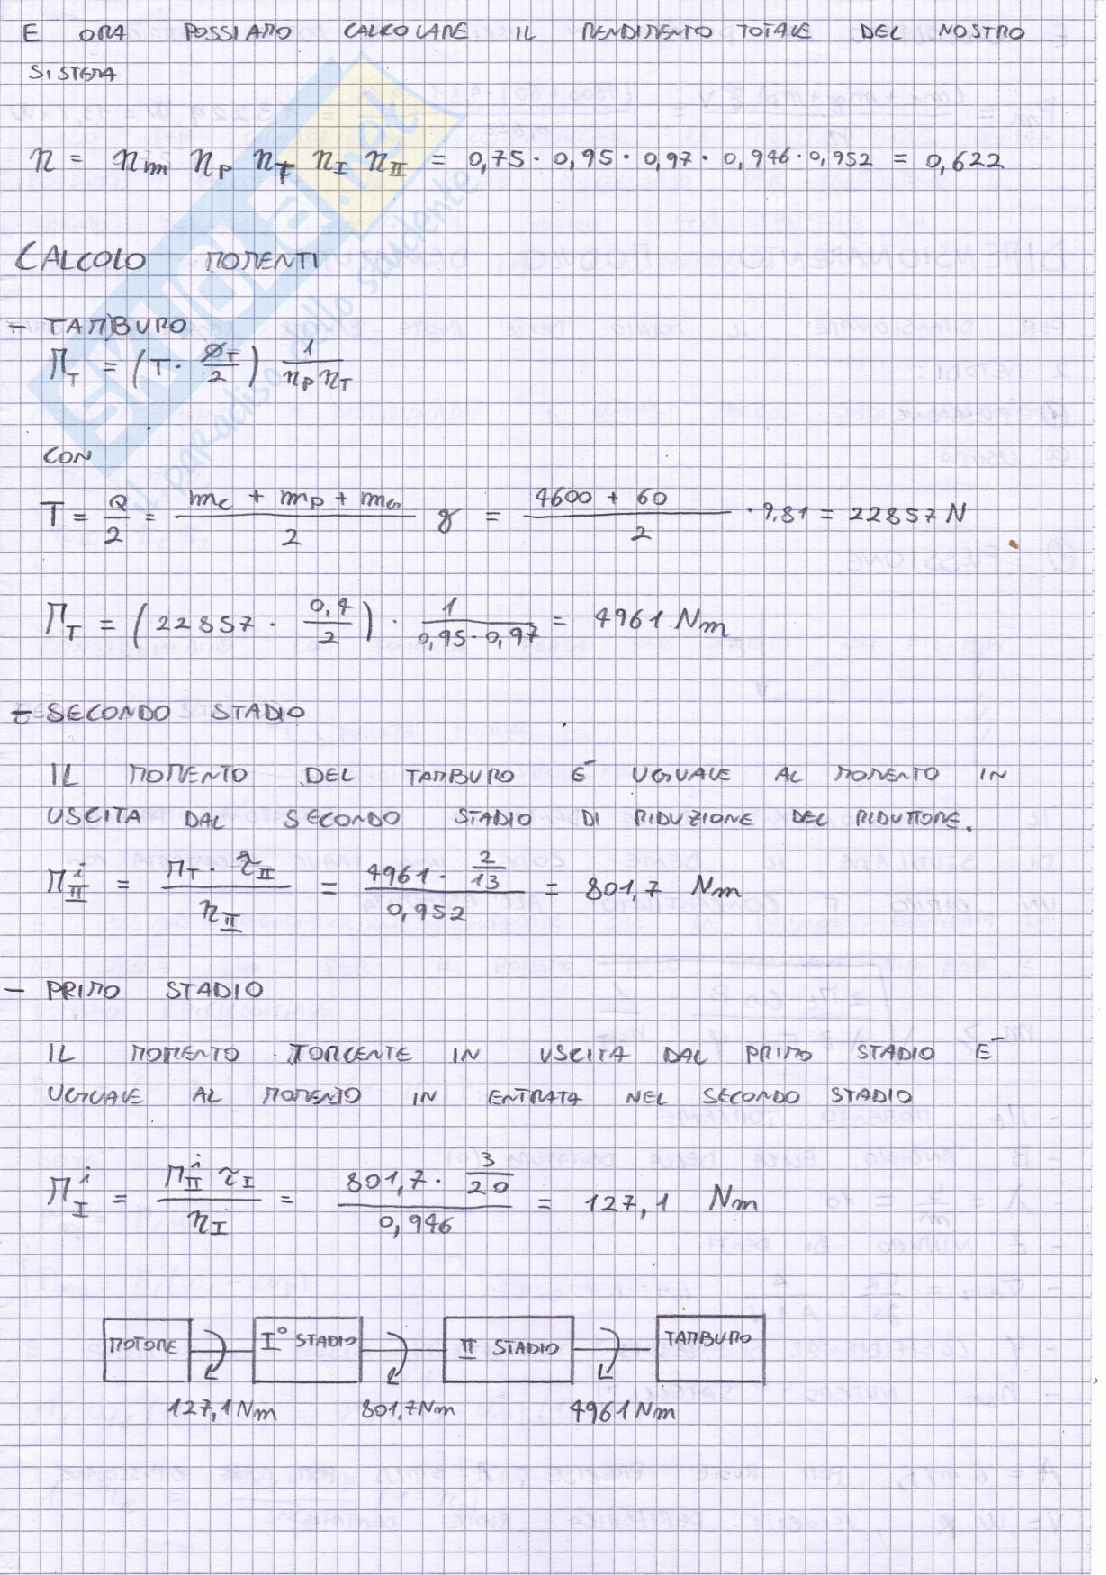 E ORA POSSIAMO CALCOLARE IL RENDIMENTO TOTALE DEL NOSTRO
SISTEMA
η = ηm ηP ηT ηI ηII = 0,75 · 0,95 · 0,97 · 0,946 · 0,952 = 0,622
CALCOLO MOMENTI
- TAMBURO
MT = (T · ØT/2) 1/(ηP ηT)
CON
T = Q/2 = (mc + mp + ma)/2 g = (4600 + 60)/2 · 9,81 = 22857 N
MT = (22857 · 0,4/2) · 1/(0,95 · 0,97) = 4961 Nm
- SECONDO STADIO
IL MOMENTO DEL TAMBURO E' UGUALE AL MOMENTO IN
USCITA DAL SECONDO STADIO DI RIDUZIONE DEL RIDUTTORE.
M^i_II = (MT · τII)/ηII = (4961 · 2/13)/0,952 = 801,7 Nm
- PRIMO STADIO
IL MOMENTO TORCENTE IN USCITA DAL PRIMO STADIO E'
UGUALE AL MOMENTO IN ENTRATA NEL SECONDO STADIO
M^i_I = (M^i_II τI)/ηI = (801,7 · 3/20)/0,946 = 127,1 Nm
MOTORE I° STADIO II STADIO TAMBURO
127,1 Nm 801,7 Nm 4961 Nm
SKUOLA.net
il paradiso dello studente